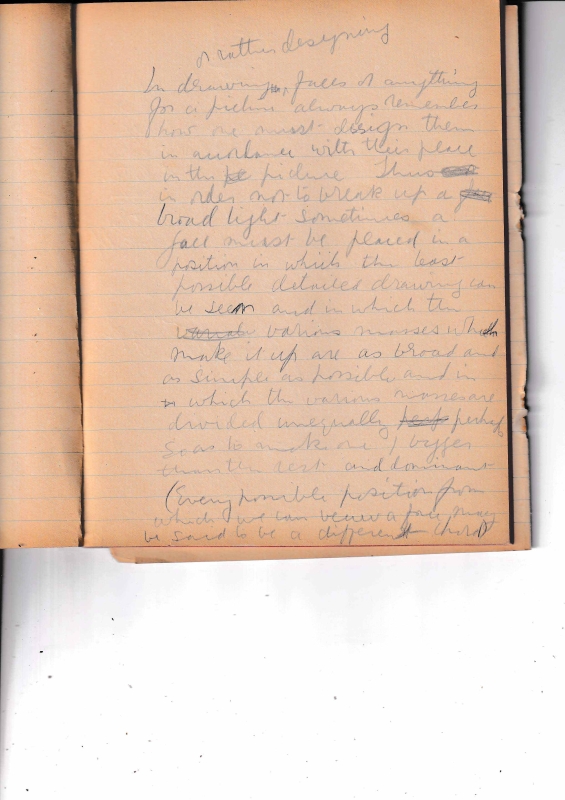 or rather designing
In drawing faces or anything
for a picture always remember
how one must design them
in accordance with their place
in the picture Thus
in order not to break up a
broad light sometimes a
face must be placed in a
position in which the least
possible detailed drawing can
be seen and in which the
various masses which
make it up are as broad and
as simple as possible and in
which the various masses are
divided unequally perhaps
so as to make one bigger
than the rest and dominant
(Every possible position from
which we can view a face may
be said to be a different chord